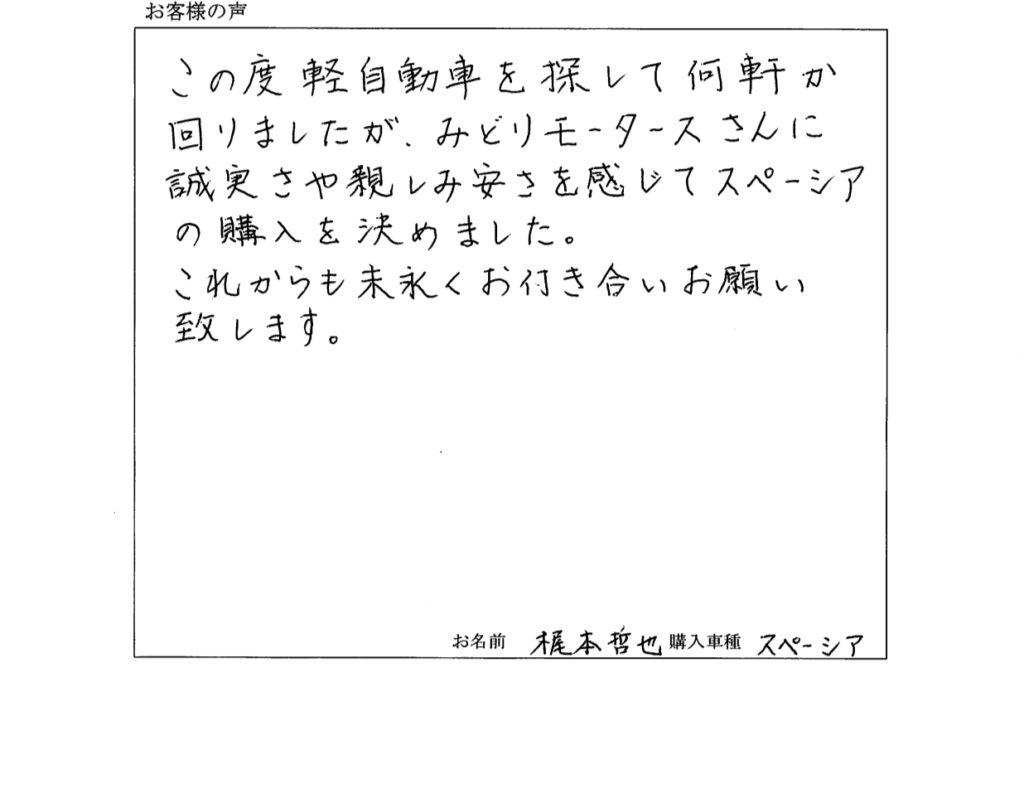 お客様の声
この度軽自動車を探して何軒か
回りましたが、みどりモータースさんに
誠実さや親しみ安さを感じてスペーシア
の購入を決めました。
これからも末永くお付き合いお願い
致します。
お名前 梶本哲也 購入車種 スペーシア